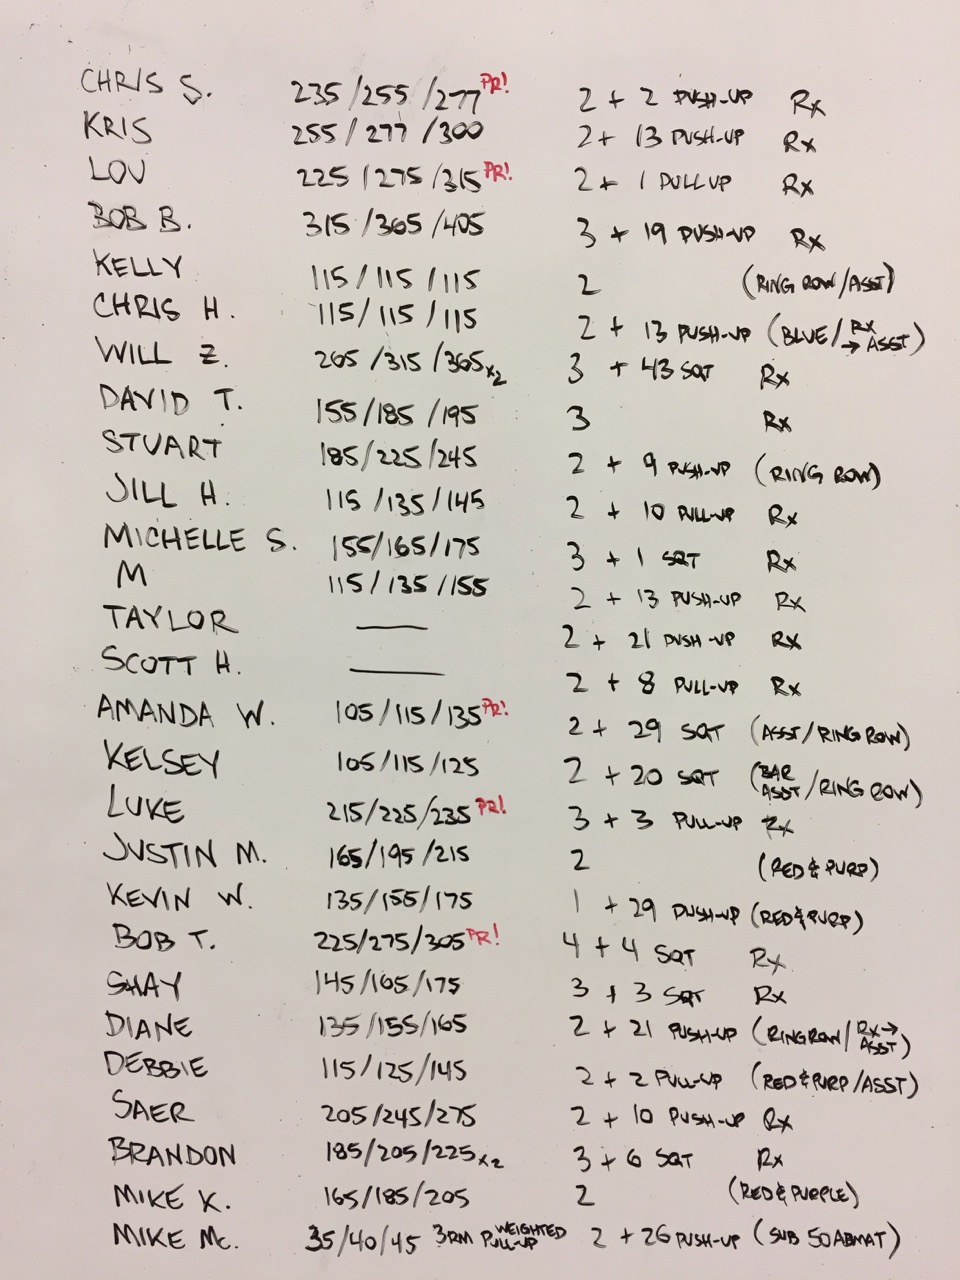 CHRIS S. 235/255/277 PR! 2 + 2 PUSH-UP Rx
KRIS 255/277/300 2 + 13 PUSH-UP Rx
LOU 225/275/315 PR! 2 + 1 PULL UP Rx
BOB B. 315/365/405 3 + 19 PUSH-UP Rx
KELLY 115/115/115 2 (RING ROW/ASST)
CHRIS H. 115/115/115 2 + 13 PUSH-UP (BLUE/RX → ASST)
WILL Z. 265/315/365 x2 3 + 43 SQT Rx
DAVID T. 155/185/195 3 Rx
STUART 185/225/245 2 + 9 PUSH-UP (RING ROW)
JILL H. 115/135/145 2 + 10 PULL-UP Rx
MICHELLE S. 155/165/175 3 + 1 SQT Rx
M 115/135/155 2 + 13 PUSH-UP Rx
TAYLOR — 2 + 21 PUSH-UP Rx
SCOTT H. — 2 + 8 PULL-UP Rx
AMANDA W. 105/115/135 PR! 2 + 29 SQT (ASST/RING ROW)
KELSEY 105/115/125 2 + 20 SQT (BAR ASST/RING ROW)
LUKE 215/225/235 PR! 3 + 3 PULL-UP Rx
JUSTIN M. 165/195/215 2 (RED & PURP)
KEVIN W. 135/155/175 1 + 29 PUSH-UP (RED & PURP)
BOB T. 225/275/305 PR! 4 + 4 SQT Rx
SHAY 145/165/175 3 + 3 SQT Rx
DIANE 135/155/165 2 + 21 PUSH-UP (RING ROW/RX → ASST)
DEBBIE 115/125/145 2 + 2 PULL-UP (RED & PURP/ASST)
SAER 205/245/275 2 + 10 PUSH-UP Rx
BRANDON 185/205/225 x2 3 + 6 SQT Rx
MIKE K. 165/185/205 2 (RED & PURPLE)
MIKE Mc. 35/40/45 3RM WEIGHTED PULL-UP 2 + 26 PUSH-UP (SUB 50 ABMAT)